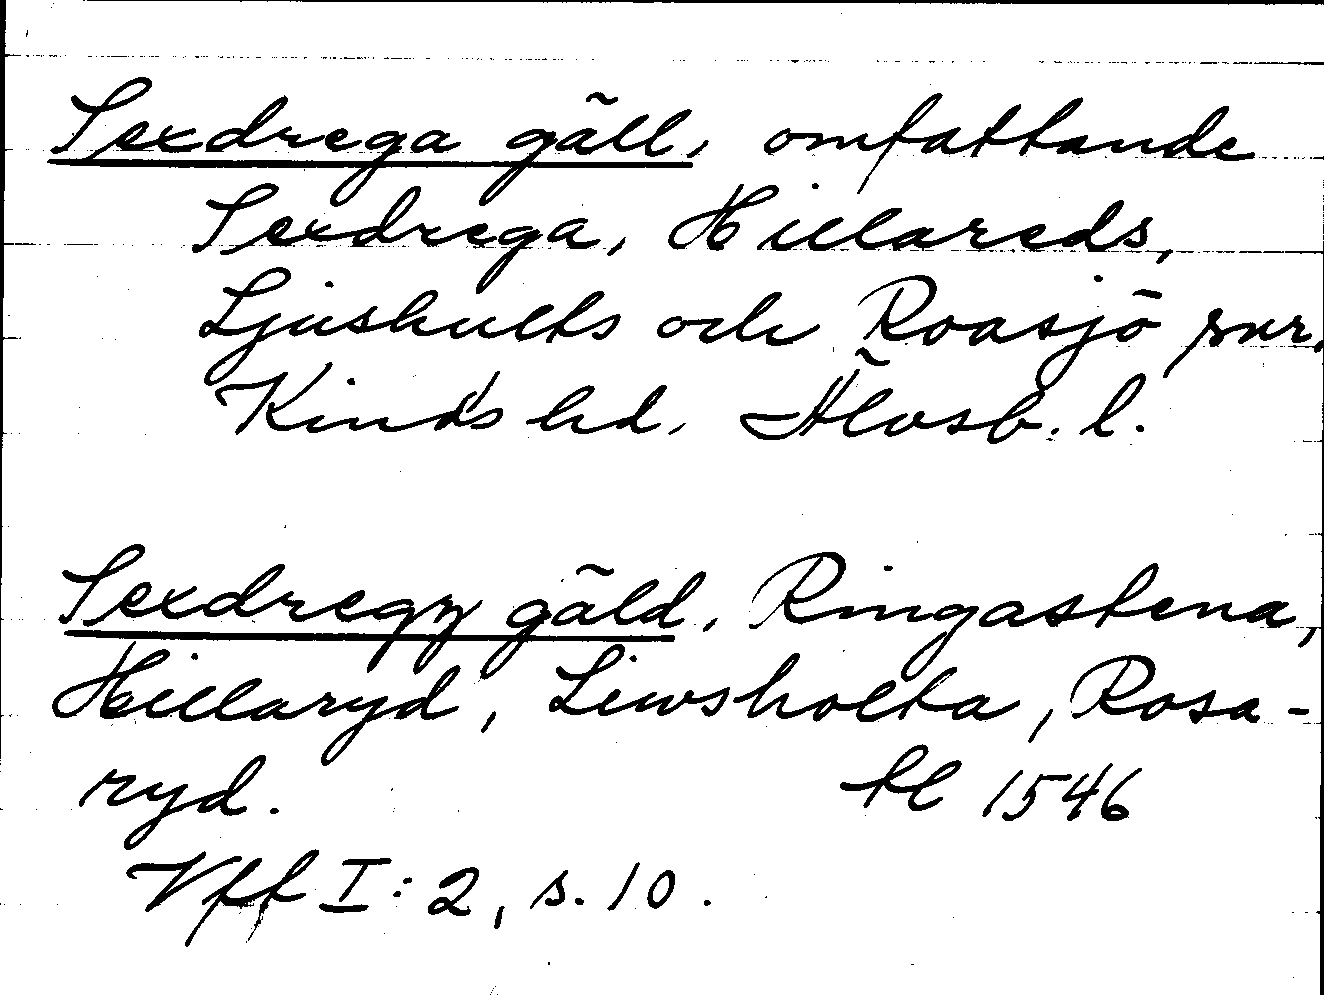 Sexdrega gäll, omfattande
Sexdrega, Hillareds,
Ljushults och Roasjö snr.
Kinds hd. Älvsb. l.
Sexdregz gäld, Ringastena,
Hillaryd, Liwsholta, Rosa-
ryd. tl 1546
Vff I: 2, s. 10.